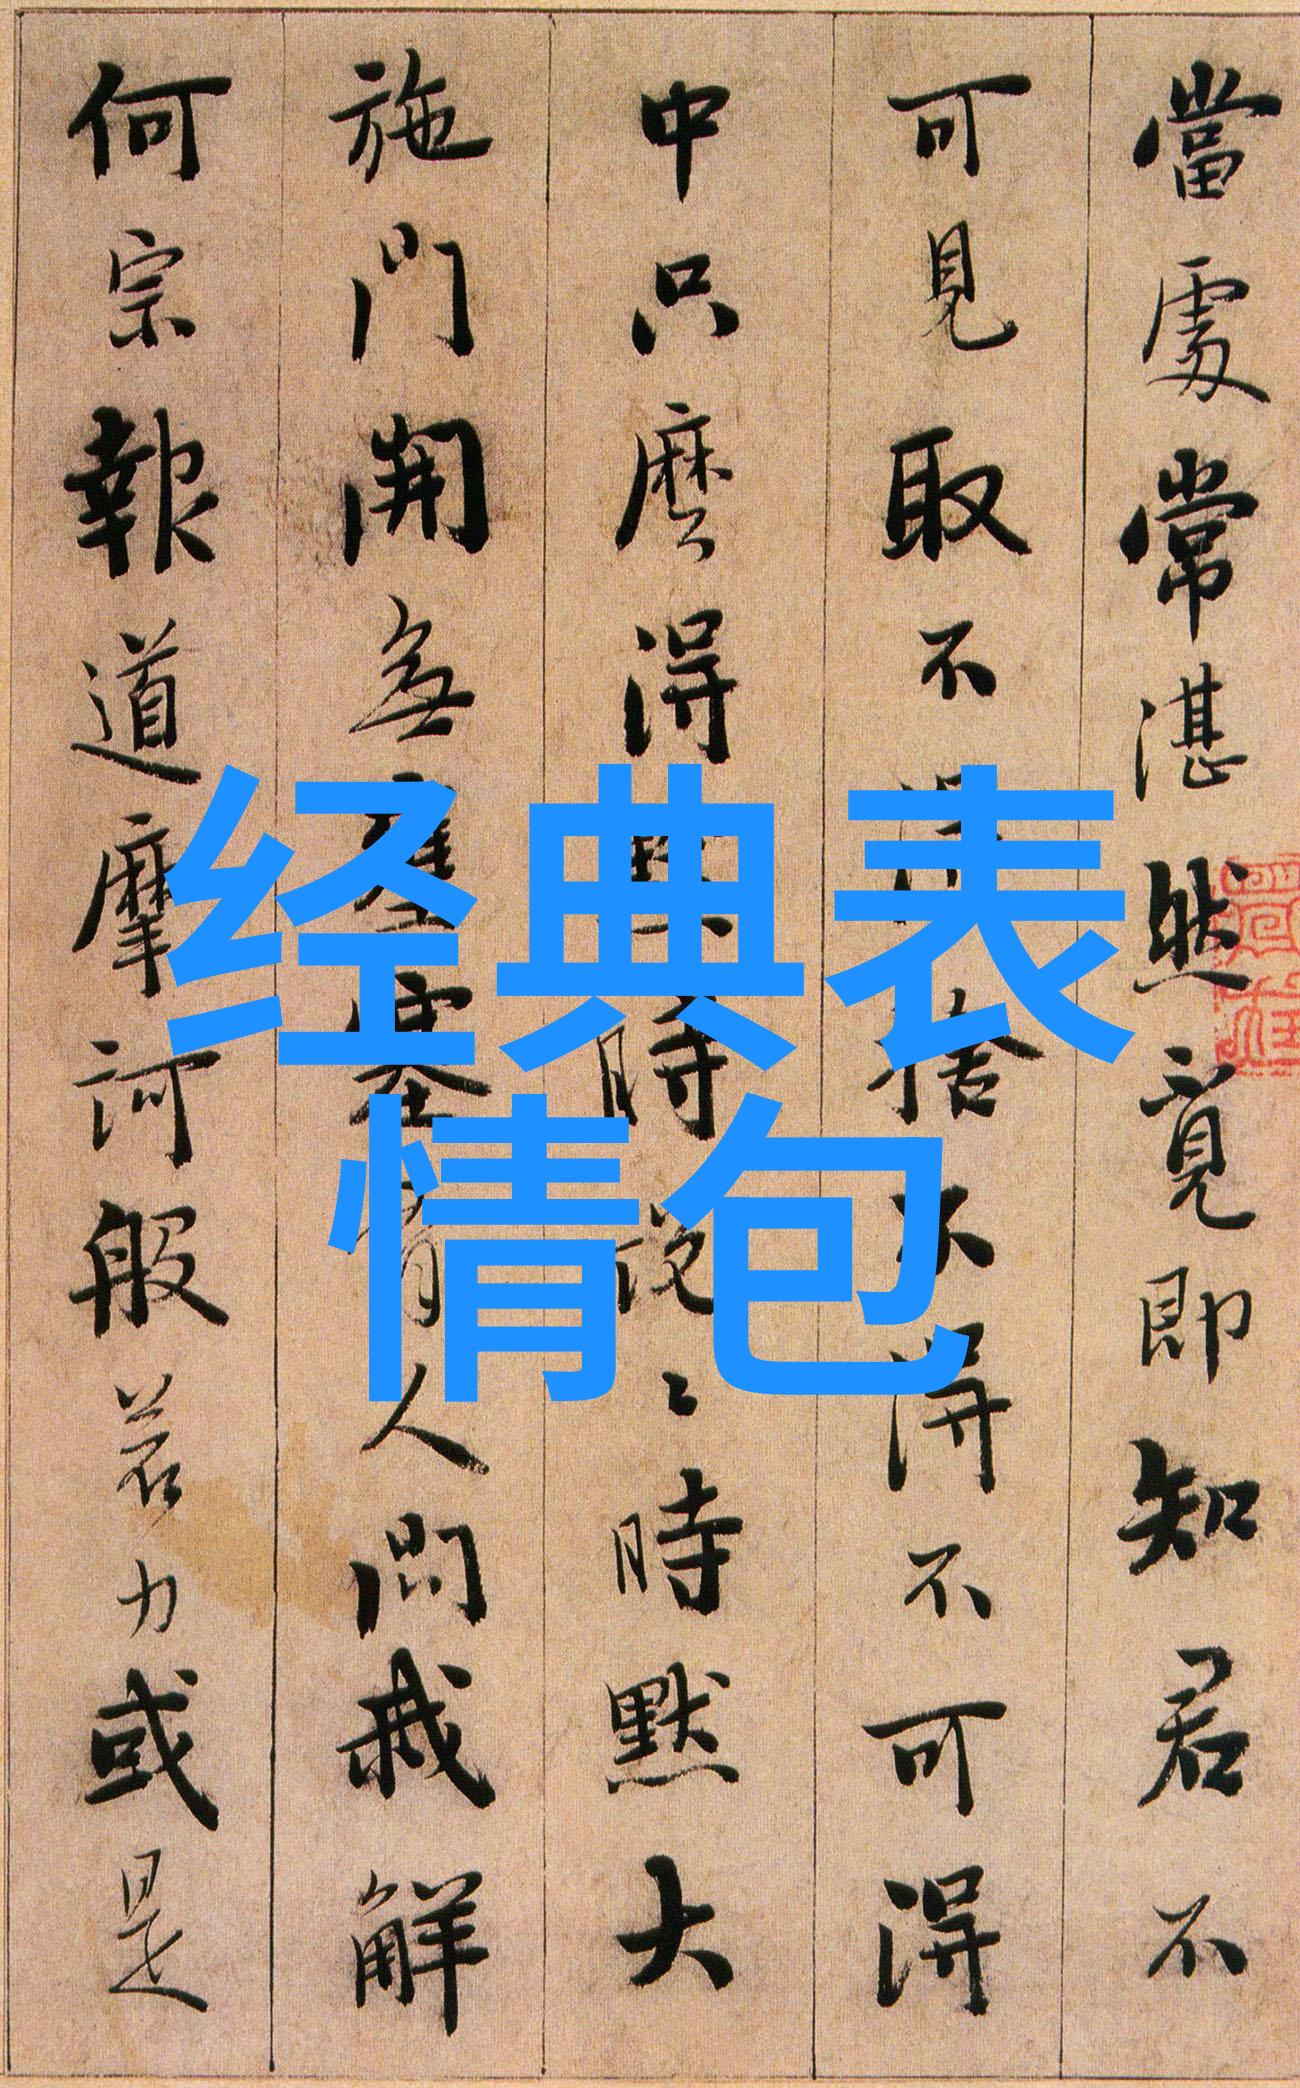 當處常湛然覓即知君不
可見取不得捨不得不可得
中只麼得默時說〻時默大
施門開無壅塞有人問我解
何宗報道摩訶般若力或是
经典表
情包